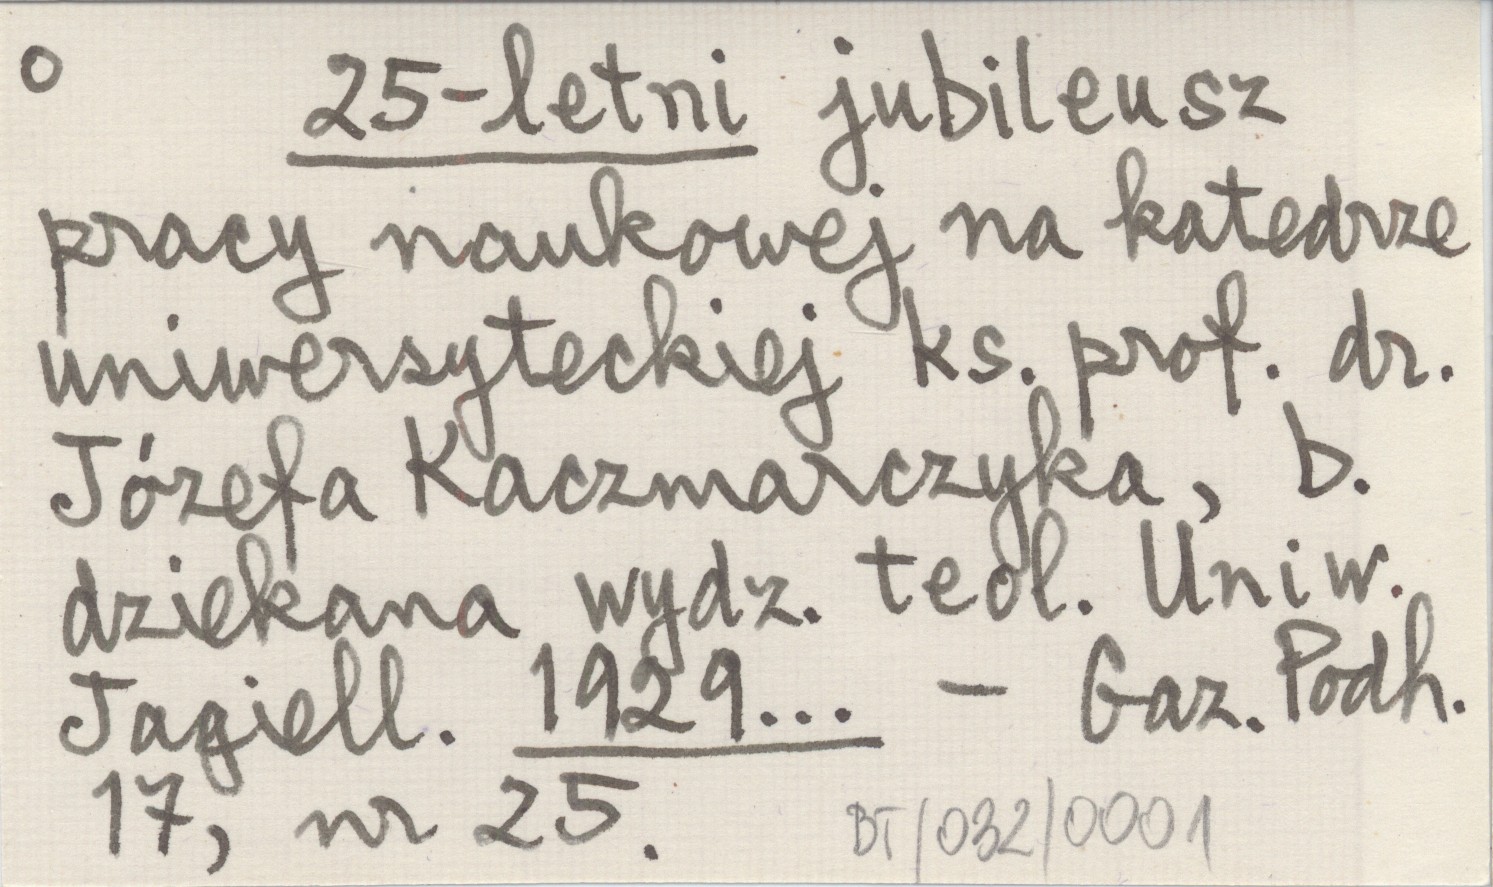 o 25-letni jubileusz
pracy naukowej na katedrze
uniwersyteckiej ks. prof. dr.
Józefa Kaczmarczyka, b.
dziekana wydz. teol. Uniw.
Jagiell. 1929... - Gaz. Podh.
17, nr 25.
BT/032/0001